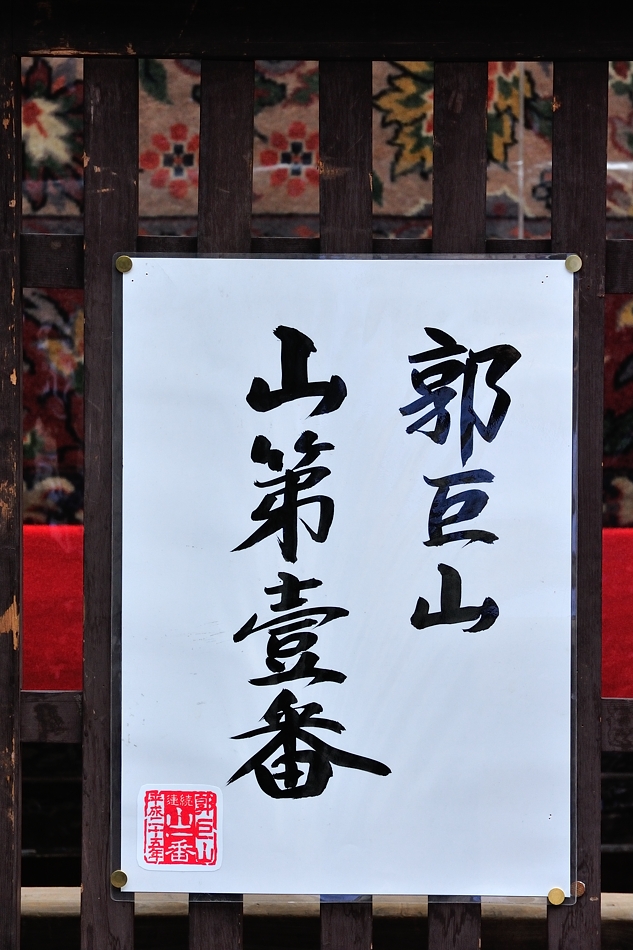 郭巨山
山第壹番
郭巨山
連続
山一番
平成二十五年